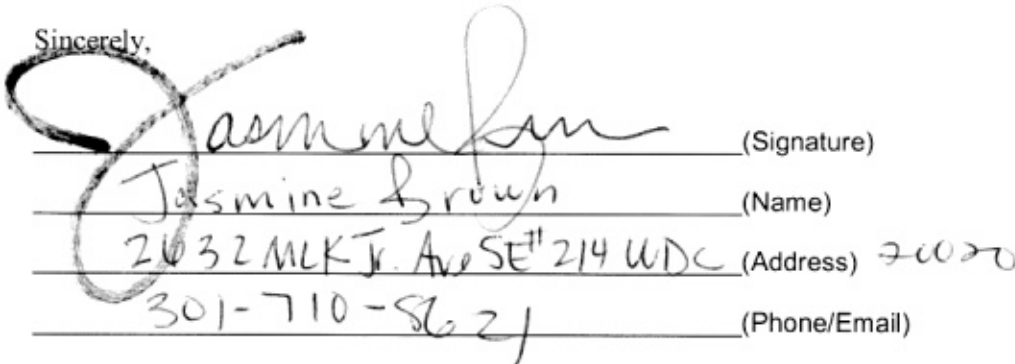 Sincerely,
Jasmine (Signature)
Jasmine Brown (Name)
2632 MLK Jr. Ave SE #214 WDC (Address) 20020
301-710-8621 (Phone/Email)